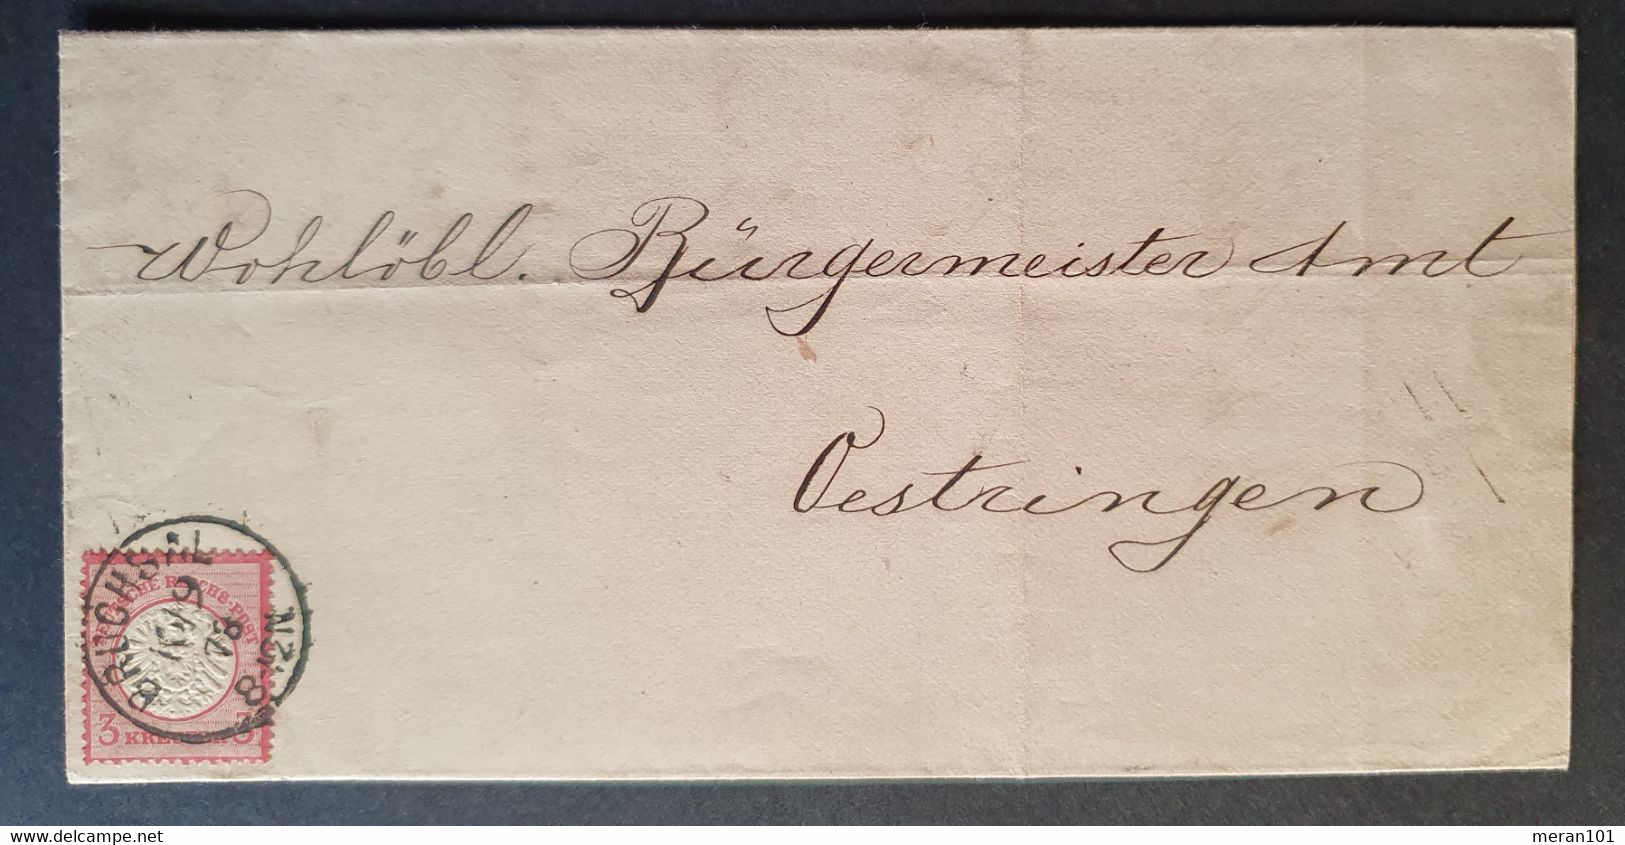 Wohllöbl. Bürgermeister Amt
Oestringen
BRUCHSAL
DEUTSCHE REICHS-POST
3 KREUZER 3
www.delcampe.net
meran101